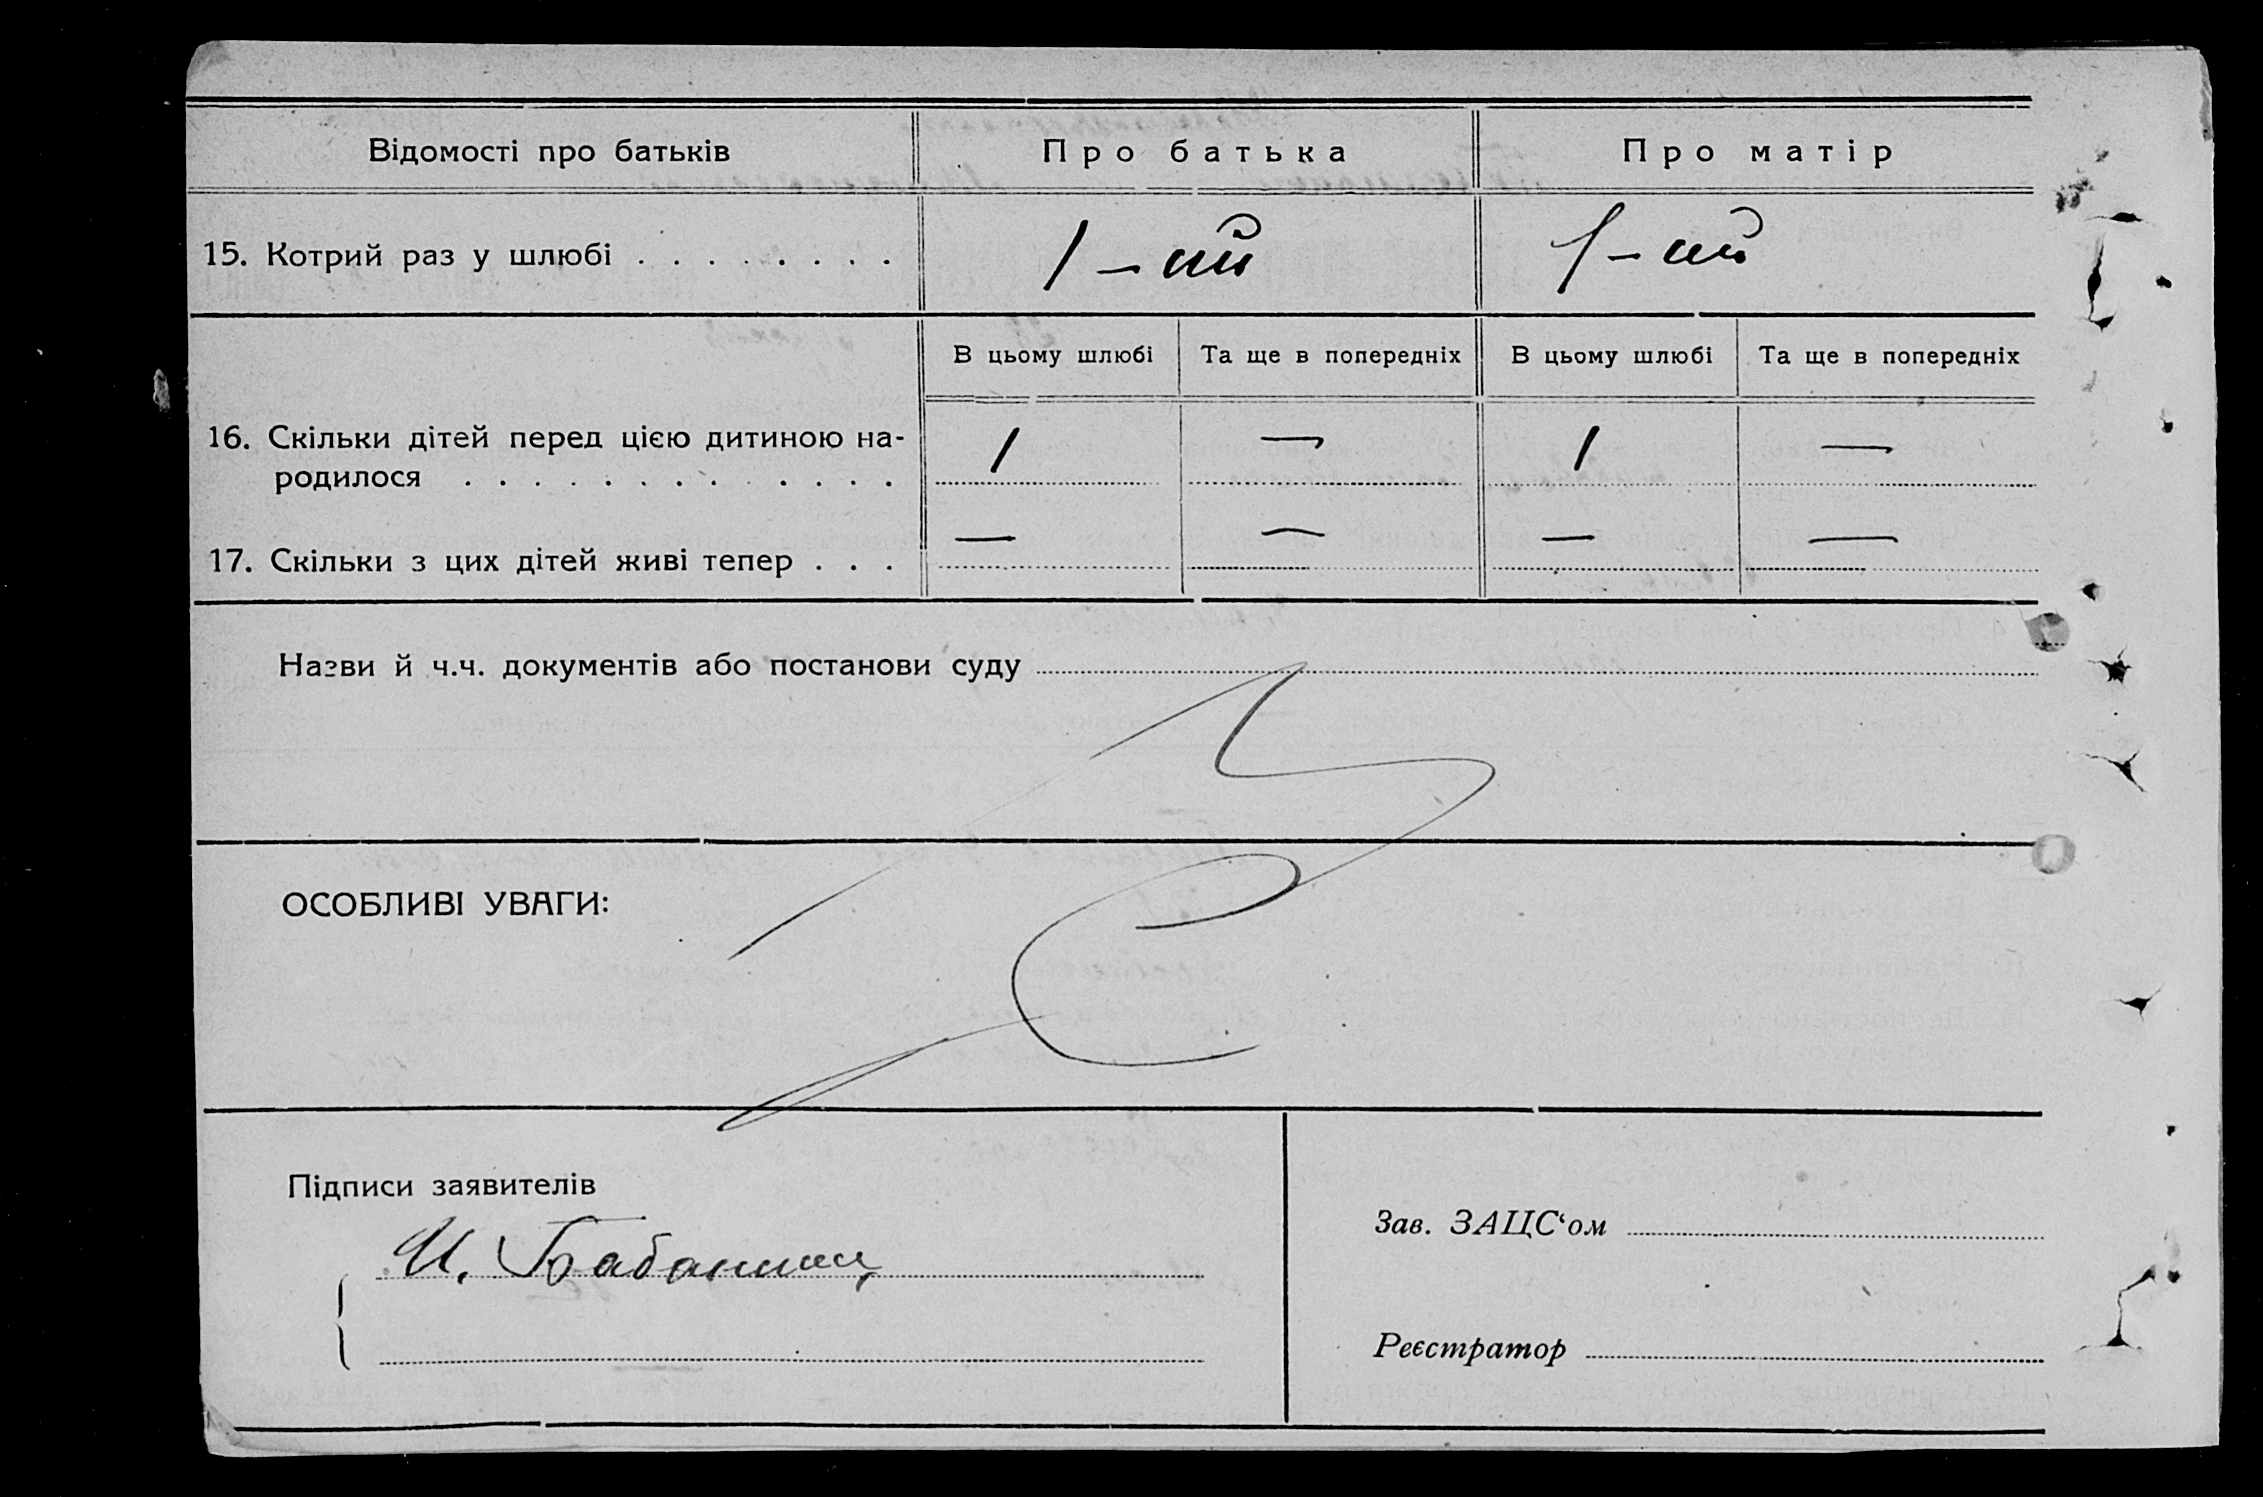 Відомості про батьків Про батька Про матір
15. Котрий раз у шлюбі . . . . . . . . 1-ий 1-ий
В цьому шлюбі Та ще в попередніх В цьому шлюбі Та ще в попередніх
16. Скільки дітей перед цією дитиною на-
родилося . . . . . . . . . . . . . 1 — 1 —
17. Скільки з цих дітей живі тепер . . . — — — —
Назви й ч.ч. документів або постанови суду
ОСОБЛИВІ УВАГИ:
Підписи заявителів
И.
Зав. ЗАЦС‘ом
Реєстратор